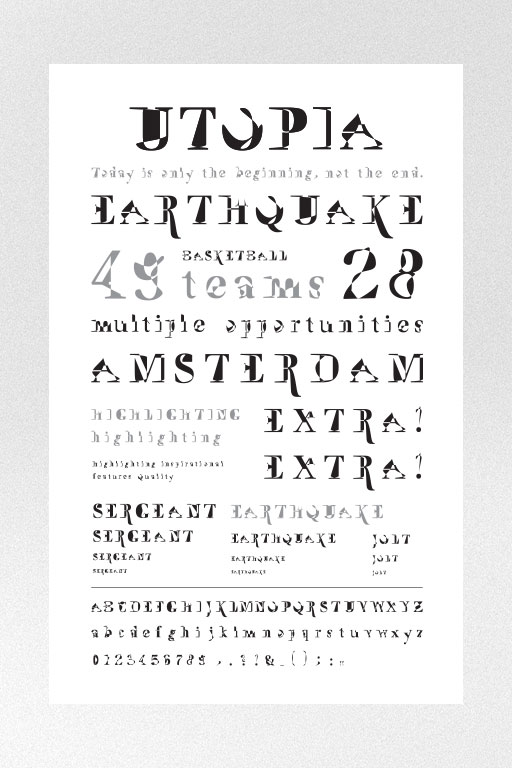 UTOPIA
Today is only the beginning, not the end.
EARTHQUAKE
49 BASKETBALL teams 28
multiple opportunities
AMSTERDAM
HIGHLIGHTING EXTRA!
highlighting
highlighting inspirational EXTRA!
features quality
SERGEANT EARTHQUAKE
SERGEANT EARTHQUAKE JOLT
SERGEANT EARTHQUAKE JOLT
SERGEANT EARTHQUAKE JOLT
ABCDEFGHIJKLMNOPQRSTUVWXYZ
abcdefghijklmnopqrstuvwxyz
0123456789 , . ? ! & _ ( ) ; : "